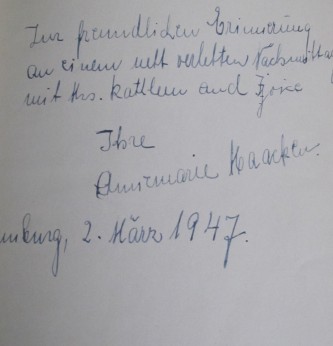 Zur freundlichen Erinnerung
an einem nett verlebten Nachmittag
mit Mrs. Kathleen and Joice
Ihre
Annemarie Haacken.
mburg, 2. März 1947.